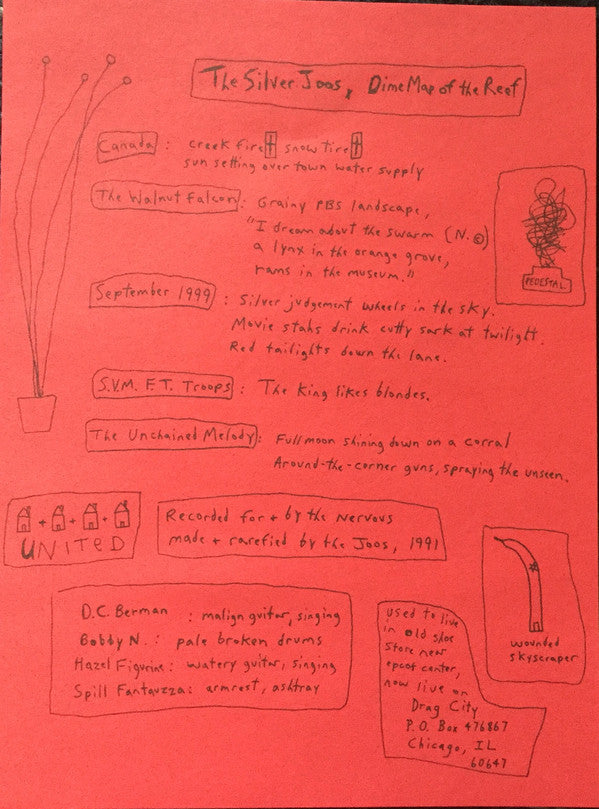 The Silver Joos, Dime Map of the Reef
Canada : creek fire† snow tire†
sun setting over town water supply
The Walnut Falcon: Grainy PBS landscape,
"I dream about the swarm (N. ©)
a lynx in the orange grove,
rams in the museum."
PEDESTAL
September 1999 : Silver judgement wheels in the sky.
Movie stahs drink cutty sark at twilight.
Red tailights down the lane.
S.V.M. F.T. Troops : The King likes blondes.
The Unchained Melody: Full moon shining down on a corral
Around-the-corner guns, spraying the unseen.
+ + +
UNITED
Recorded for + by the Nervous
made + rarefied by the Joos, 1991
D.C. Berman : malign guitar, singing
Bobby N. : pale broken drums
Hazel Figurine : watery guitar, singing
Spill Fantauzza: armrest, ashtray
used to live
in old shoe
store new
epcot center,
now live on
Drag City
P.O. Box 476867
Chicago, IL
60647
wounded
skyscraper